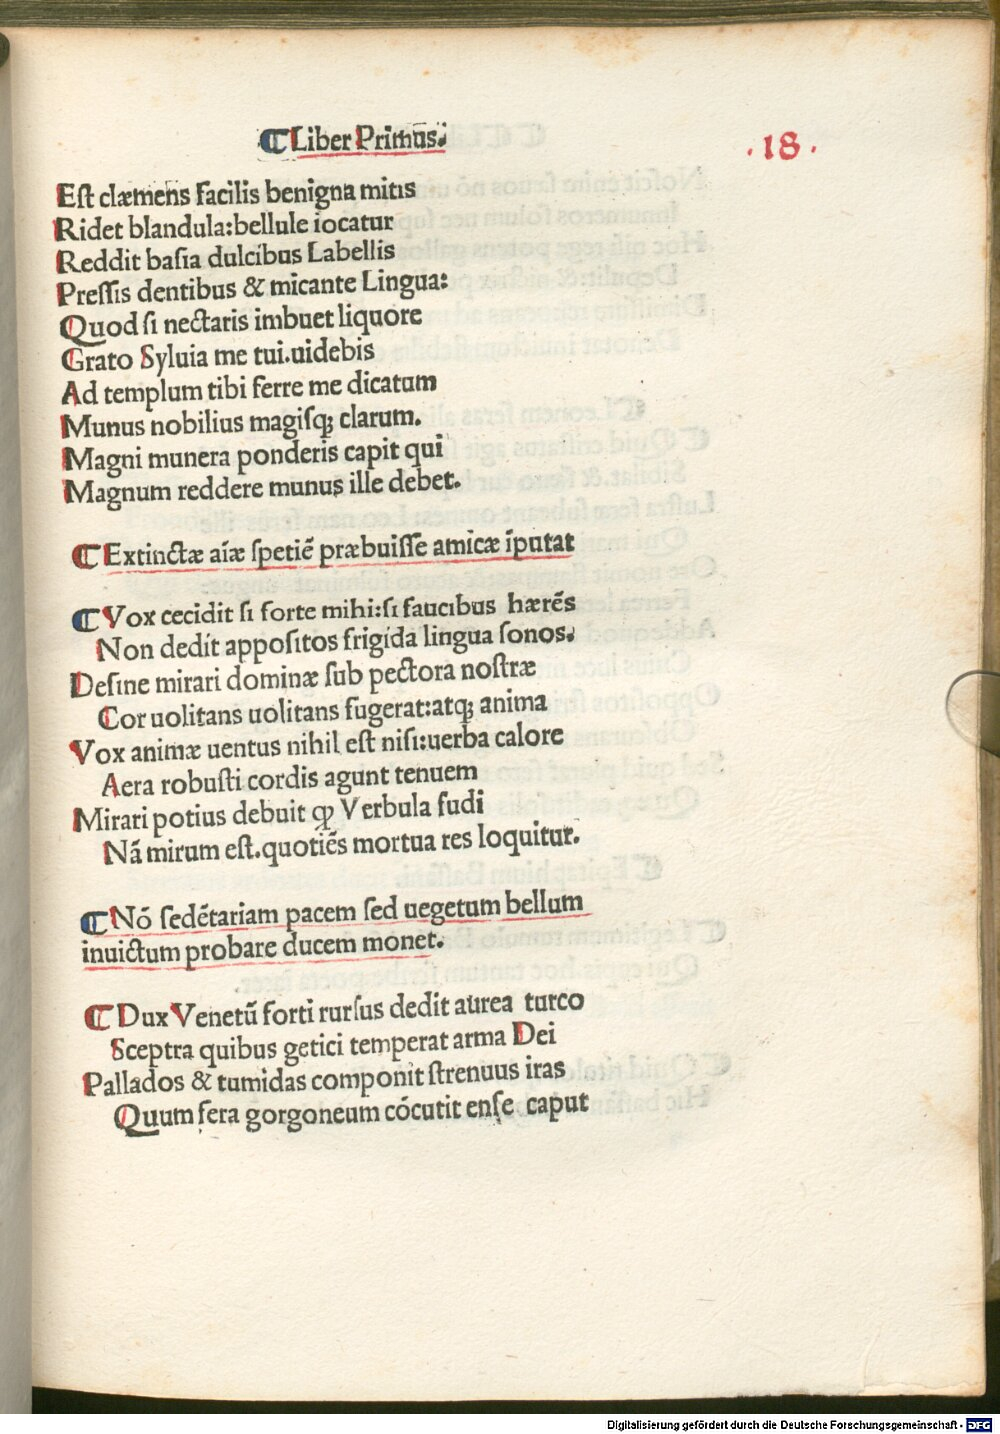 ¶ Liber Primus.
.18.
Est clæmens facilis benigna mitis
Ridet blandula:bellule iocatur
Reddit basia dulcibus Labellis
Pressis dentibus & micante Lingua:
Quod si nectaris imbuet liquore
Grato Syluia me tui.uidebis
Ad templum tibi ferre me dicatum
Munus nobilius magisqꝫ clarum.
Magni munera ponderis capit qui
Magnum reddere munus ille debet.
¶ Extinctæ aīæ spetiē præbuisse amicæ īputat
¶ Vox cecidit si forte mihi:si faucibus hærēs
Non dedit appositos frigida lingua sonos.
Desine mirari dominæ sub pectora nostræ
Cor uolitans uolitans fugerat:atqꝫ anima
Vox animæ uentus nihil est nisi:uerba calore
Aera robusti cordis agunt tenuem
Mirari potius debuit ꝙ Verbula fudi
Nā mirum est.quotiēs mortua res loquitur.
¶ Nō sedētariam pacem sed uegetum bellum
inuictum probare ducem monet.
¶ Dux Venetū forti rursus dedit aurea turco
Sceptra quibus getici temperat arma Dei
Pallados & tumidas componit strenuus iras
Quum fera gorgoneum cōcutit ense caput
Digitalisierung gefördert durch die Deutsche Forschungsgemeinschaft - DFG